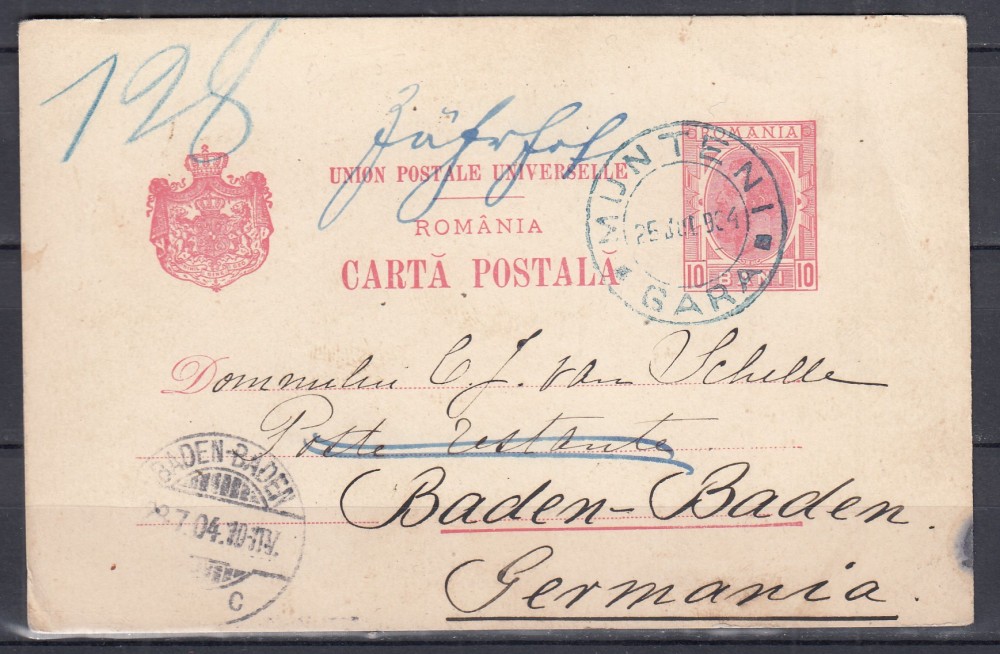 128
UNION POSTALE UNIVERSELLE
ROMÂNIA
CARTĂ POSTALĂ
ROMANIA
10 BANI 10
MUNTENI
25 JUL 904
GARA
Domnului C. J. van Schelle
Poste restante
Baden-Baden.
Germania.
BADEN-BADEN
7.04.10-11V.
C